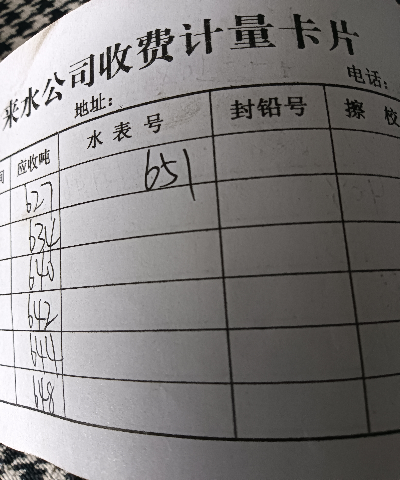 来水公司收费计量卡片
地址： 电话：
间 应收吨 水表号 封铅号 擦校
627 651
634
640
642
644
648